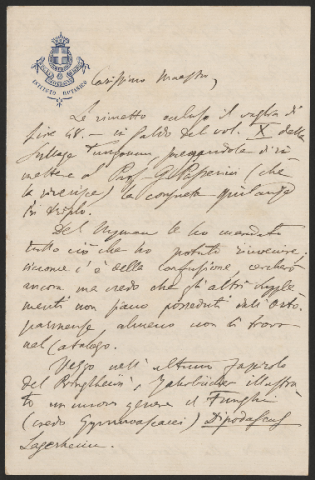 ISTITUTO BOTANICO
Carissimo Maestro,
Le rimetto accluso il vaglia di
Lire 48. — in saldo del vol. X della
Sylloge Fungorum, pregandola di ri
mettere al Prof. G. Passerini (che
la riverisce) la consueta quietanza
in duplo.
Del Nyman le ho mandato
tutto ciò che ho potuto rinvenire,
siccome c'è della confusione, cercherò
ancora ma credo che gli altri supple
menti non siano posseduti dall'Orto
parmense almeno non li trovo
nel Catalogo.
Vedo nell'ultimo fascicolo
del Pringsheim's Jahrbücher illustra
to un nuovo genere di Funghi
(credo Gymnoascacei) Dipodascus
Lagerheim.